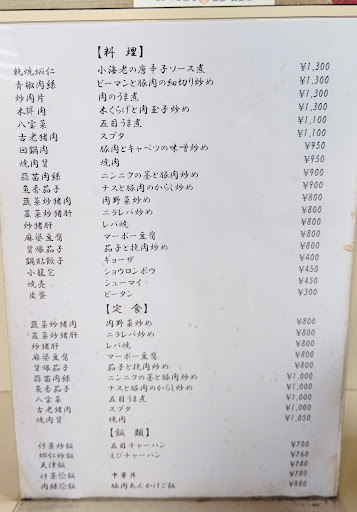 【料 理】
乾焼蝦仁 小海老の唐辛子ソース煮 ¥1,300
青椒肉絲 ピーマンと豚肉の細切り炒め ¥1,300
炒肉片 肉のうま煮 ¥1,300
木犀肉 木くらげと肉玉子炒め ¥1,300
八宝菜 五目うま煮 ¥1,100
古老猪肉 スブタ ¥1,100
回鍋肉 豚肉とキャベツの味噌炒め ¥950
焼肉貨 焼肉 ¥950
蒜苗肉絲 ニンニクの茎と豚肉炒め ¥900
魚香茄子 ナスと豚肉のからし炒め ¥900
蔬菜炒猪肉 肉野菜炒め ¥800
韮菜炒猪肝 ニラレバ炒め ¥800
炒猪肝 レバ焼 ¥800
麻婆豆腐 マーボー豆腐 ¥800
貨爆茄子 茄子と挽肉炒め ¥800
鍋貼餃子 ギョーザ ¥400
小籠包 ショウロンポウ ¥450
焼売 シューマイ ¥450
皮蛋 ピータン ¥300
【定 食】
蔬菜炒猪肉 肉野菜炒め ¥800
韮菜炒猪肝 ニラレバ炒め ¥800
炒猪肝 レバ焼 ¥800
麻婆豆腐 マーボー豆腐 ¥800
貨爆茄子 茄子と挽肉炒め ¥800
蒜苗肉絲 ニンニクの茎と豚肉炒め ¥1,000
魚香茄子 ナスと豚肉のからし炒め ¥1,000
八宝菜 五目うま煮 ¥1,000
古老猪肉 スブタ ¥1,000
焼肉貨 焼肉 ¥1,050
【飯 類】
什景炒飯 五目チャーハン ¥700
蝦仁炒飯 えびチャーハン ¥760
天津飯 ¥780
什景燴飯 中華丼 ¥780
肉絲燴飯 豚肉あんかけご飯 ¥880